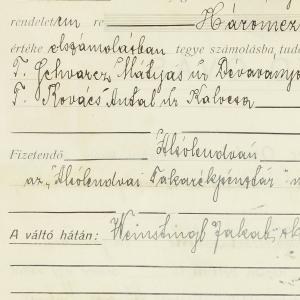 rendeletem re Háromez
értéke elszámolásban tegye számolásba, tud
T. Schvarcz Mátyás úr Dévaványa
T. Kovács Antal úr Kalocsa
Fizetendő Alsólendván
az „Alsólendvai Takarékpénztár"
A váltó hátán: Weinstingl Jakab